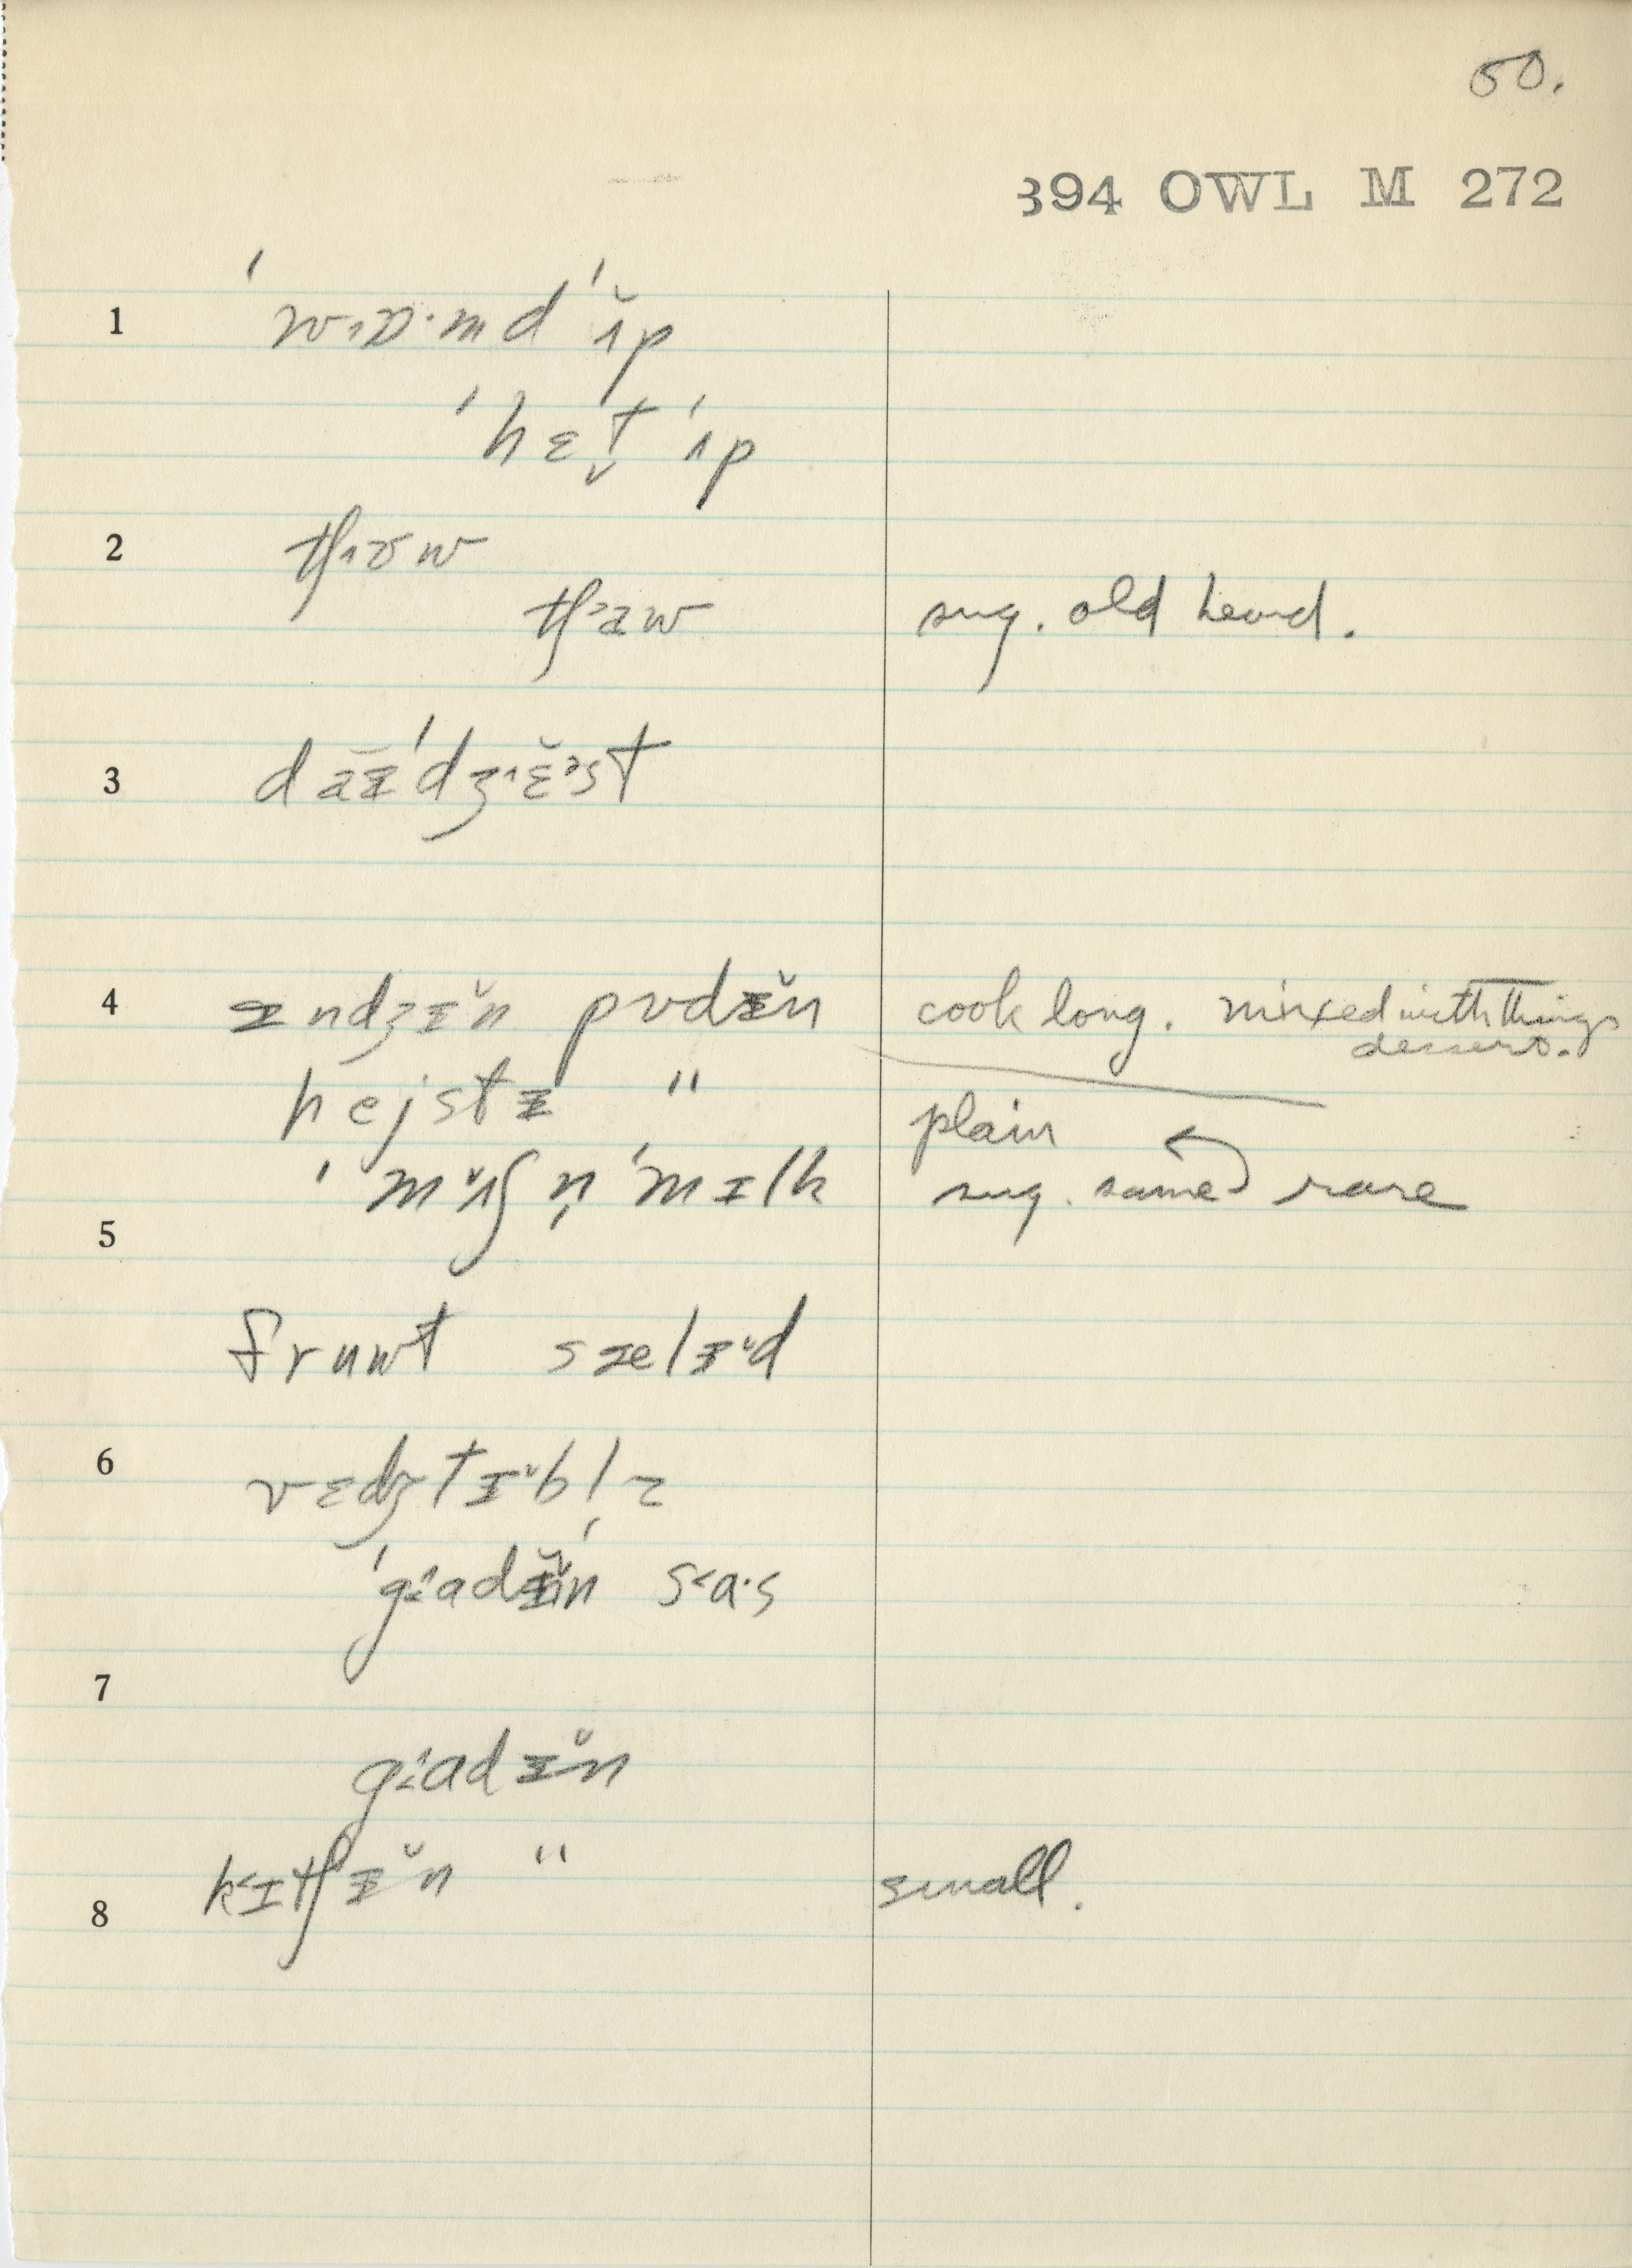 50.
394 OWL M 272
1 ˈwɔɒ·md ˈʌ̆p
ˈhɛt̬ ˈʌp
2 tʃɔʊw
tʃaw sug. old heard.
3 ˈdʒɛ̆ɪst
4 ɪndʒɪ̆n pʊdɪ̆n cook long. mixed with things
dessert.
hejstɪ " plain
ˈmʌ̆ʃ n̩ ˈmɪlk sug. same rare
5
fruwt sælɪ̆d
6 vɛdʒtɪ̆bl̩z
ˈgɑdɪ̆n sɑ·s
7
gɑdɪ̆n
kɪtʃɪ̆n " small.
8